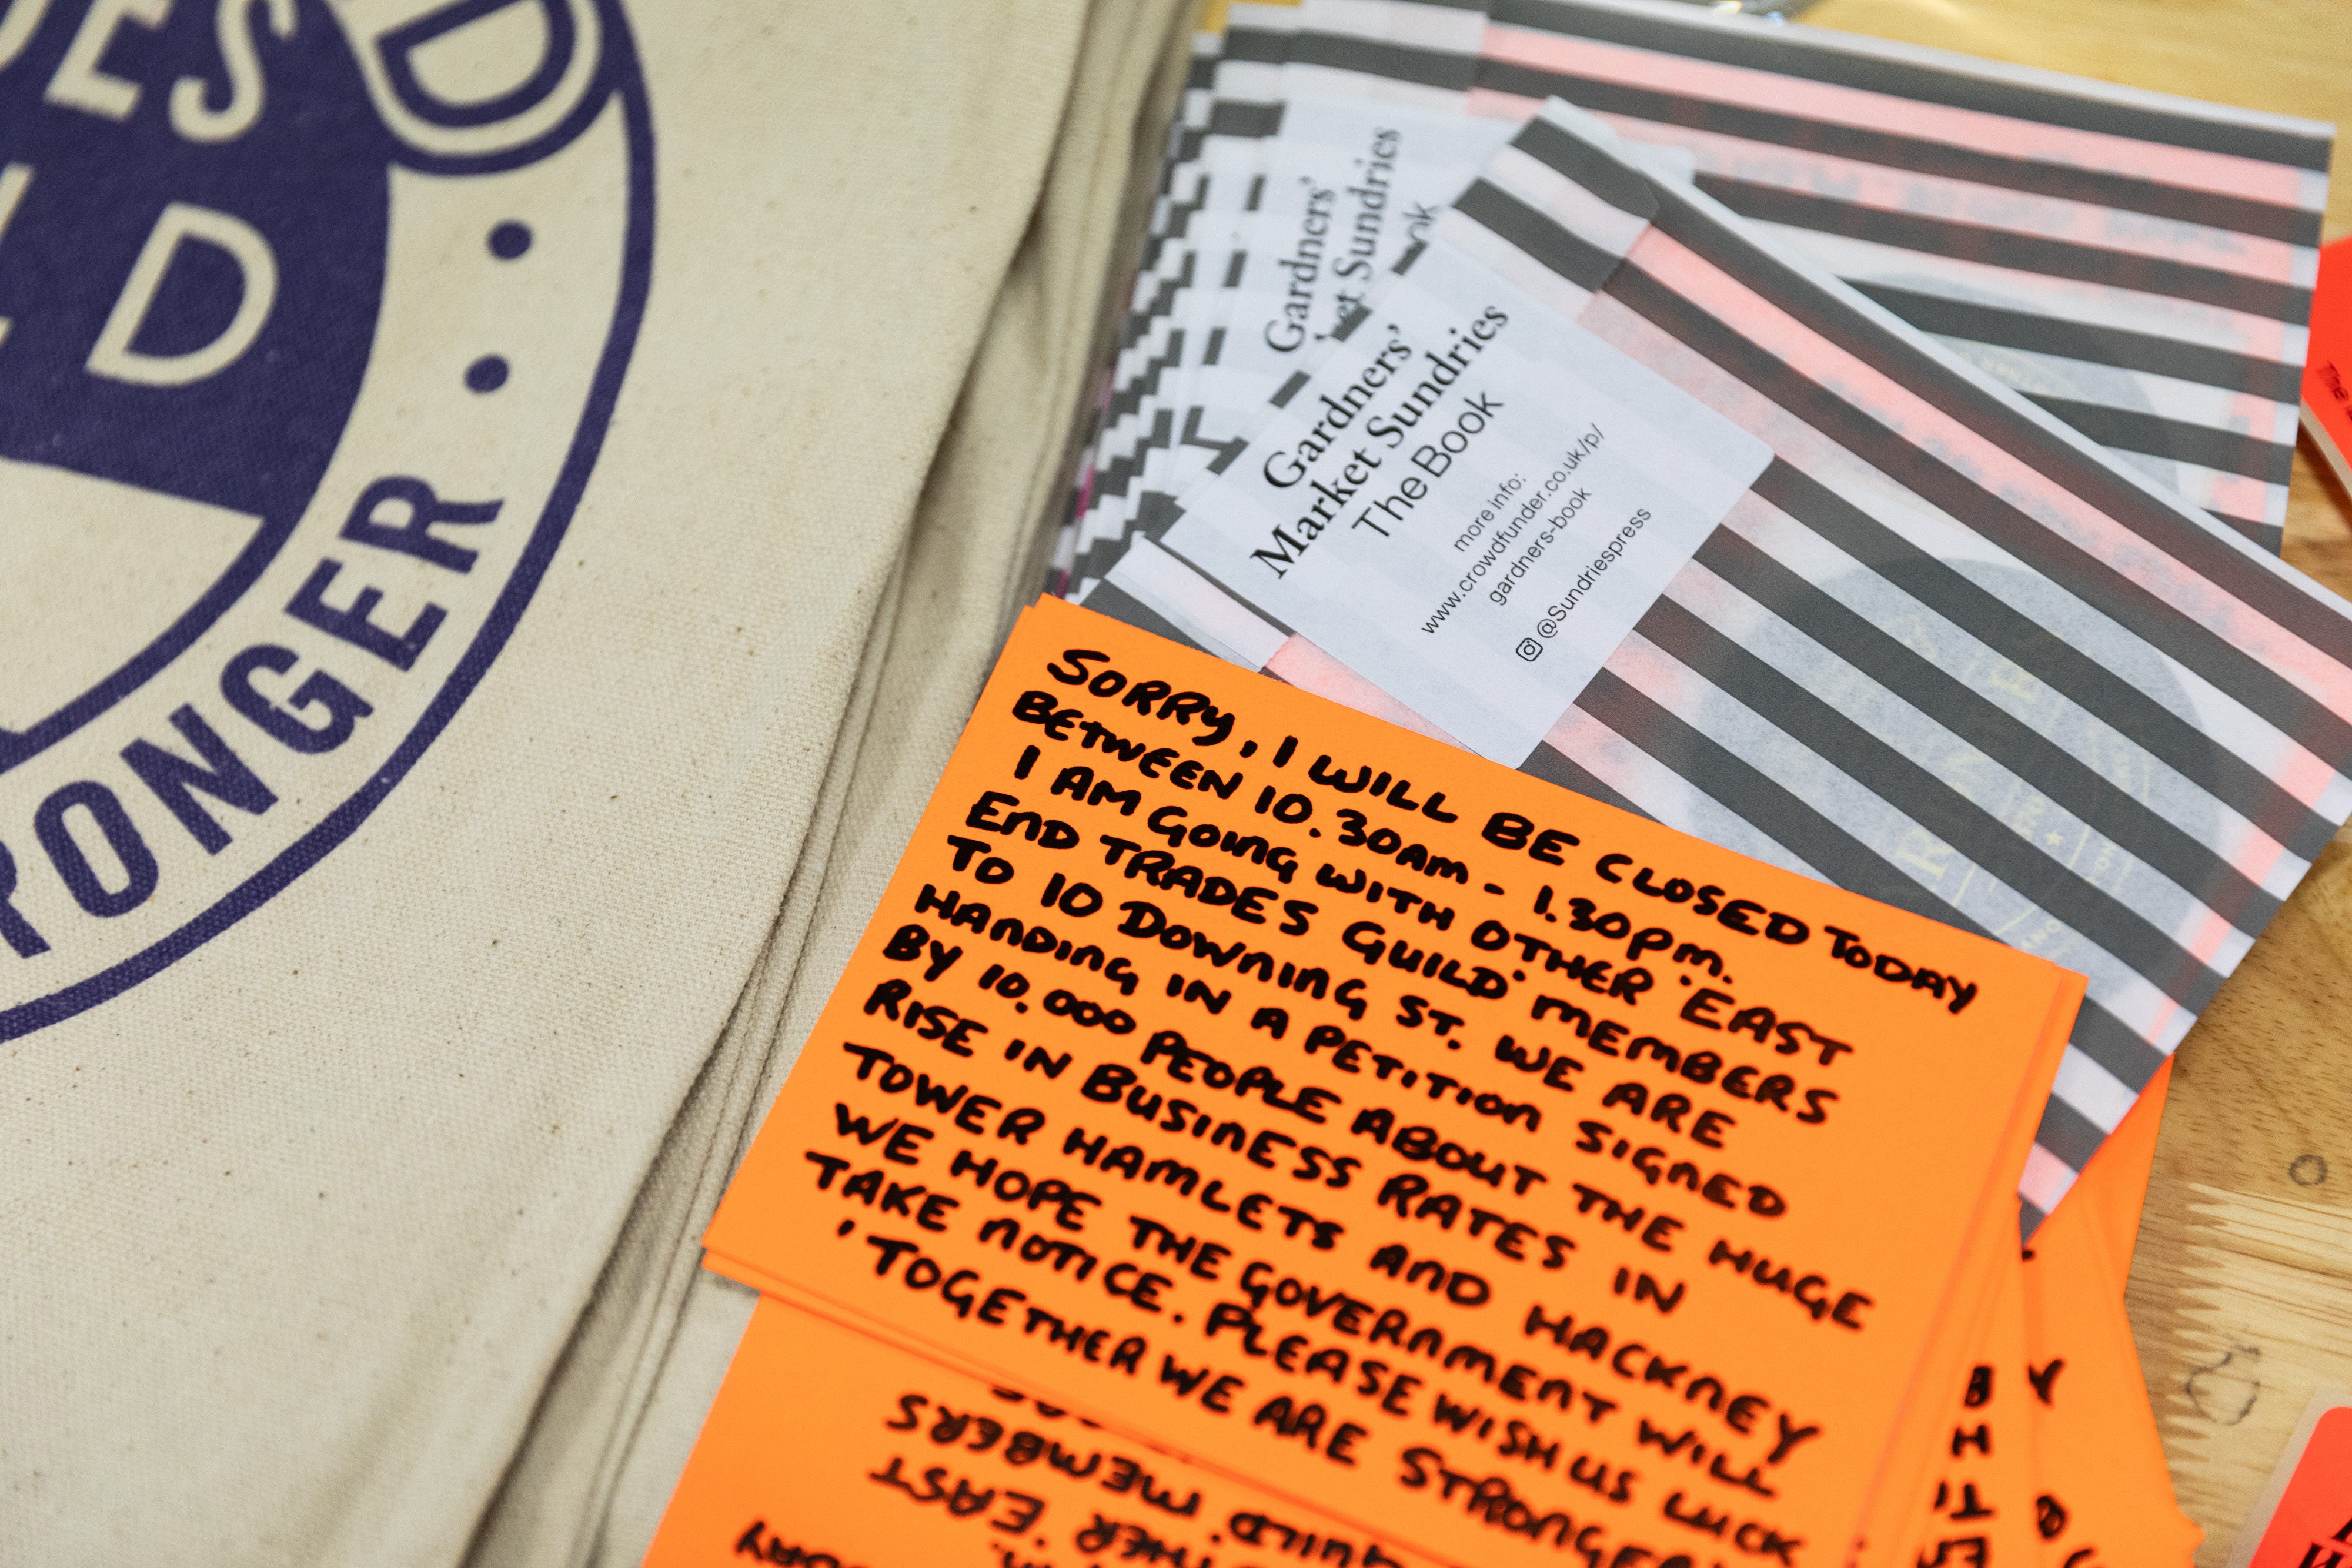 DES
D
LD
RONGER
Gardners'
Market Sundries
Gardners'
Market Sundries
The Book
more info:
www.crowdfunder.co.uk/p/
gardners-book
@Sundriespress
SORRY, I WILL BE CLOSED TODAY
BETWEEN 10.30AM - 1.30PM.
I AM GOING WITH OTHER 'EAST
END TRADES GUILD' MEMBERS
TO 10 DOWNING ST. WE ARE
HANDING IN A PETITION SIGNED
BY 10,000 PEOPLE ABOUT THE HUGE
RISE IN BUSINESS RATES IN
TOWER HAMLETS AND HACKNEY
WE HOPE THE GOVERNMENT WILL
TAKE NOTICE. PLEASE WISH US LUCK
'TOGETHER WE ARE STRONGER'
MEMBERS
EAST